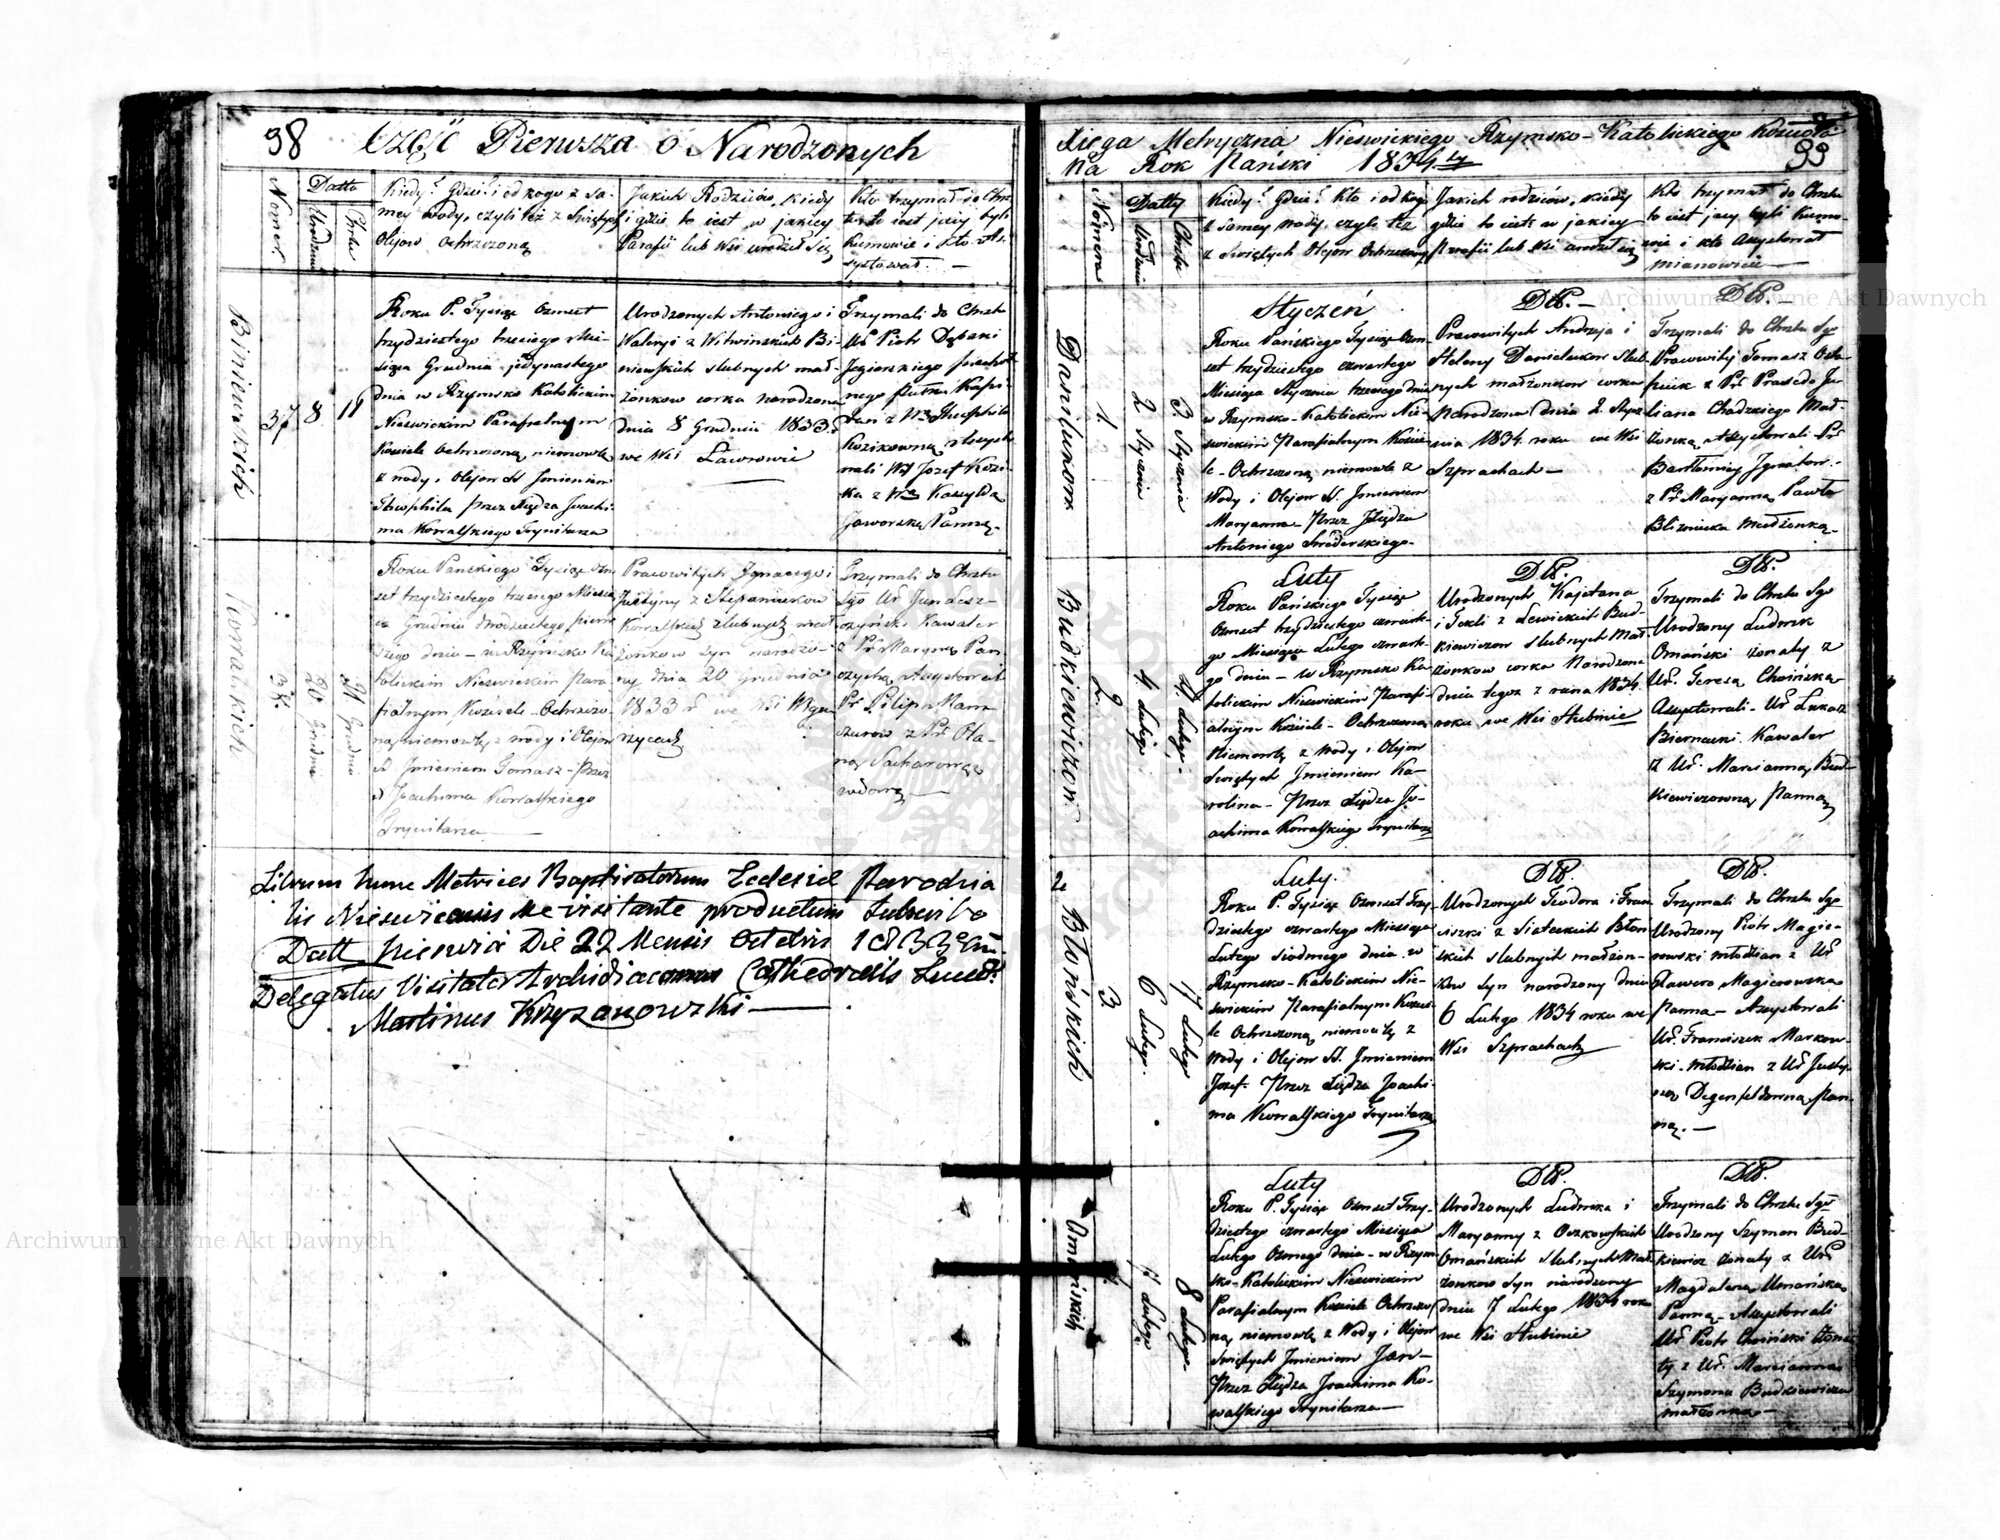 98 Część Pierwsza o Narodzonych
Nomer
Datta
Urodzenia
Chrztu
Kiedy? Gdzie? i od kogo z sa-
mey wody, czyli też z Swiętych
Olejow ochrzczoną
Jakich Rodziców, kiedy
i gdzie to iest w jakiey
Parafii lub Wsi urodził się
Kto trzymał do Chrz
tu to iest jacy byli
Kumowie i kto As-
systował. —
Biniewskich
37
8
11
Roku P. Tysiąc Ośmset
trzydziestego trzeciego Mie-
siąca Grudnia jedynastego
dnia w Rzymsko Katolickim
Nieswickim Parafialnym
Kosciele Ochrzczoną niemowlę
z wody i Olejow SS. Jmieniem
Theophila przez Xiędza Joachi-
ma Kowalskiego Trynitarza
Urodzonych Antoniego i
Waleryi z Witwinskich Bi-
niewskich slubnych mał-
żonkow corka narodzona
dnia 8 Grudnia 1833 r.
we Wsi Ławrowie
Trzymali do Chrztu
Ur Piotr Dębski
Kozikowną Assysto-
wali Wł Jozef Kozi-
ka z Wą Kassyldą
Jaworską Panną.
Kowalskich
38.
20 Grudnia
21 Grudnia
Roku Pańskiego Tysiąc Ośm
set trzydziestego trzeciego Miesią
ca Grudnia dwudziestego pierw
szego dnia — w Rzymsko Ka
tolickim Nieswickim Para
fialnym Kosciele Ochrzczo-
ną niemowlę z wody i Olejow
SS. Jmieniem Tomasz — Przez
X Joachima Kowalskiego
Trynitarza —
Pracowitych Jgnacego i
Justyny z Stepaniukow
Kowalskich slubnych mał
żonkow syn narodzo-
ny dnia 20 Grudnia
1833 r. we Wsi
Trzymali do Chrztu
Sgo Ur Jan Lesz-
czyński Kawaler
z Pr Maryną Pan
Assystowali
Pr Filip Man
z Pr Ole-
ną Sacharową
wdową —
Librum hunc Metrices Baptisatorum Ecclesiæ Parochia
lis Niesvicensis me visitante productum Subscribo
Datt Niesvicia Die 22 Mensis Octobris 1833
Delegatus Visitator Archidiaconus Cathedralis Luceo.
Martinus Krzyzanowski —
Xięga Metryczna Nieswickiego Rzymsko-Katolickiego Kosciola
Na Rok Pański 1834ty
99
Nomera
Datty
Urodzin
Chrztu
Kiedy? Gdzie? Kto i od kogo
z samey wody, czyli też
z Swiętych Olejow Ochrzczony
Jakich rodziców, kiedy
gdzie to iest w jakiey
Parafii lub Wsi urodził się
Kto trzymał do Chrztu
to iest jacy byli Kumo-
wie i kto Assystował
mianowicie —
Danilukow
1.
2 Stycznia
3 Stycznia
Styczeń
Roku Pańskiego Tysiąc Ośm
set trzydziestego czwartego
Miesiąca Stycznia trzeciego dnia
w Rzymsko-Katolickim Nie-
swickim Parafialnym Koście-
le — Ochrzczoną niemowlę z
Wody i Olejow SS. Jmieniem
Maryanna — Przez Xiędza
Antoniego Srederskiego —
Dtt. —
Pracowitych Andrzeja i
Heleny Danielukow slub-
nych małżonkow corka
Narodzona dnia 2. Stycz
nia 1834. roku we Wsi
Szprachach —
Dtt. —
Trzymali do Chrztu Sgo
Pracowity Tomasz Osta-
Juliana Chadzkiego Mał-
żonką, Assystowali Pr
Bartłomiey Jgnatow. —
z Pr Maryanną Pawła
Bliźniuka małżonką —
Budkiewiczow
2.
4. Lutego
4. Lutego
Luty
Roku Pańskiego Tysiąc
Ośmset trzydziestego czwarte-
go Miesiąca Lutego czwarte-
go dnia — w Rzymsko Ka
tolickim Nieswickim Parafi-
alnym Kościele — Ochrzczoną
Niemowlę z Wody i Olejow
Swiętych Jmieniem Ka-
rolina — Przez Xiędza Jo-
achima Kowalskiego Trynitarza
Dtt.
Urodzonych Kajetana
i Tekli z Lewickich Bud-
kiewiczow slubnych Mał-
żonkow corka Narodzona
dnia tegoż z rana 1834.
roku we Wsi Stubinie
Dtt.
Trzymali do Chrztu Sgo
Urodzony Ludwik
Omański żonaty z
Ur. Teresą Choińską
Assystowali — Ur Łukasz
Biernacki Kawaler
z Ur. Marcianną Bud-
kiewiczowną Panną
Błońskich
3
6 Lutego
7 Lutego
Luty.
Roku P. Tysiąc Ośmset Trzy-
dziestego czwartego Miesiąca
Lutego siodmego dnia w
Rzymsko-Katolickim Nie-
swickim Parafialnym Koscie-
le Ochrzczoną niemowlę z
Wody i Olejow SS. Jmieniem
Jozef — Przez Xiędza Joachi-
ma Kowalskiego Trynitarza
Dtt.
Urodzonych Teodora i Fran
ciszki z Siateckich Błoń
skich slubnych małżon-
kow syn narodzony dnia
6 Lutego 1834 roku we
Wsi Szprachach
Dtt.
Trzymali do Chrztu Sgo
Urodzony Piotr Magie-
rowski młodzian z Ur
Xawerą Magierowską
Panną — Assystowali
Ur. Franciszek Markow-
ski — młodzian z Ur Justy-
ną Degenfeldowną Pan-
ną. —
Omańskich
7 Lutego
8 Lutego
Luty
Roku P. Tysiąc Ośmset Trzy-
dziestego czwartego Miesiąca
Lutego Osmego dnia — w Rzym
sko-Katolickim Nieswickim
Parafialnym Kosciele Ochrzczo
ną niemowlę z Wody i Olejow
Swiętych Jmieniem Jan —
Przez Xiędza Joachima Ko-
walskiego Trynitarza —
Dtt.
Urodzonych Ludwika i
Maryanny z Oszkowskich
Omańskich slubnych Mał
żonkow syn narodzony
dnia 7 Lutego 1834 roku
we Wsi Stubinie
Dtt.
Trzymali do Chrztu Sgo
Urodzony Szymon Bud-
kiewicz żonaty z Ur
Magdaleną Omańską
Panną — Assystowali
Ur Piotr Choiński żona
ty z Ur. Marcianną
Szymona Budkiewicza
małżonką —
Archiwum Główne Akt Dawnych
Archiwum Główne Akt Dawnych